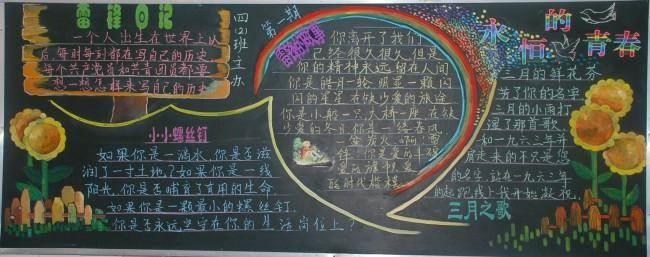 雷锋日记
一个人出生在世界上以
后,每时每刻都在写自己的历史
每个共产党员和共青团员都要
想一想怎样来写自己的历史
四(2)班主办
第一期
小小螺丝钉
如果你是一滴水,你是否滋
润了一寸土地?如果你是一线
阳光,你是否哺育了有用的生命
如果你是一颗最小的螺丝钉,
你是否永远坚守在你的生活岗位上?
你离开了我们
已经很久很久,但是
你的精神永远留在人间
你是皓月一轮,明亮一颗闪
闪的星星,在缺少爱的旅途
你是小船一只,大桥一座,在缺
少爱的冬日,你是一缕春风
一盏萤火,啊!雷
锋,你是爱的丰碑
永恒的青春
三月的鲜花芬
芳了你的名字
三月的小雨打
湿了那首歌
和一九六三年并
肩走来的不只是您
的名字,站在一九六三年
三月之歌